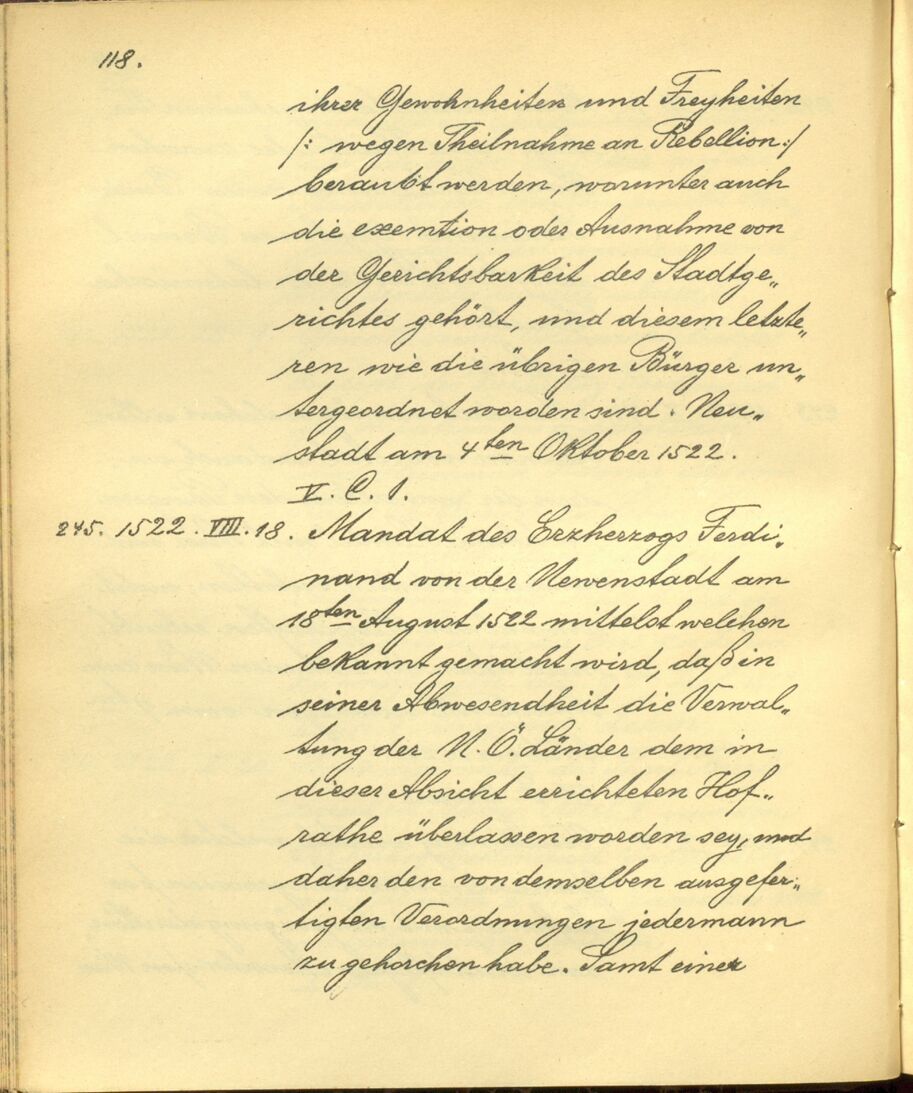 118.
ihrer Gewohnheiten und Freyheiten
/: wegen Theilnahme an Rebellion :/
beraubt werden, worunter auch
die exemtion oder Ausnahme von
der Gerichtsbarkeit des Stadtge„
richtes gehört, und diesem letzte„
ren wie die übrigen Bürger un„
tergeordnet worden sind. Neu„
stadt am 4ten Oktober 1522.
V. C. 1.
245. 1522. VIII. 18. Mandat des Erzherzogs Ferdi„
nand von der Newenstadt am
18ten August 1522 mittelst welchen
bekannt gemacht wird, daß in
seiner Abwesendheit die Verwal„
tung der N. Ö. Länder dem in
dieser Absicht errichteten Hof„
rathe überlassen worden sey, und
daher den von demselben ausgefer„
tigten Verordnungen jedermann
zu gehorchen habe. Samt einer